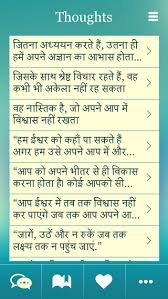 Thoughts
जितना अध्ययन करते हैं, उतना ही
हमें अपने अज्ञान का आभास होता...
जिसके साथ श्रेष्ठ विचार रहते हैं, वह
कभी भी अकेला नहीं रह सकता
वह नास्तिक है, जो अपने आप में
विश्वास नहीं रखता
“हम ईश्वर को कहाँ पा सकते हैं
अगर हम उसे अपने आप में और...
“आप को अपने भीतर से ही विकास
करना होता है। कोई आपको सी...
“आप ईश्वर में तब तक विश्वास नहीं
कर पाएंगे जब तक आप अपने...
“जागें, उठें और न रुकें जब तक
लक्ष्य तक न पहुंच जाएं.”